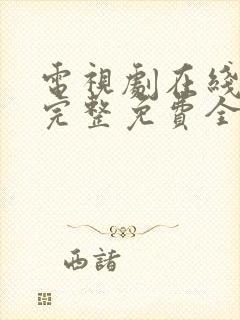 電視劇在綫
完整免費全
西諸